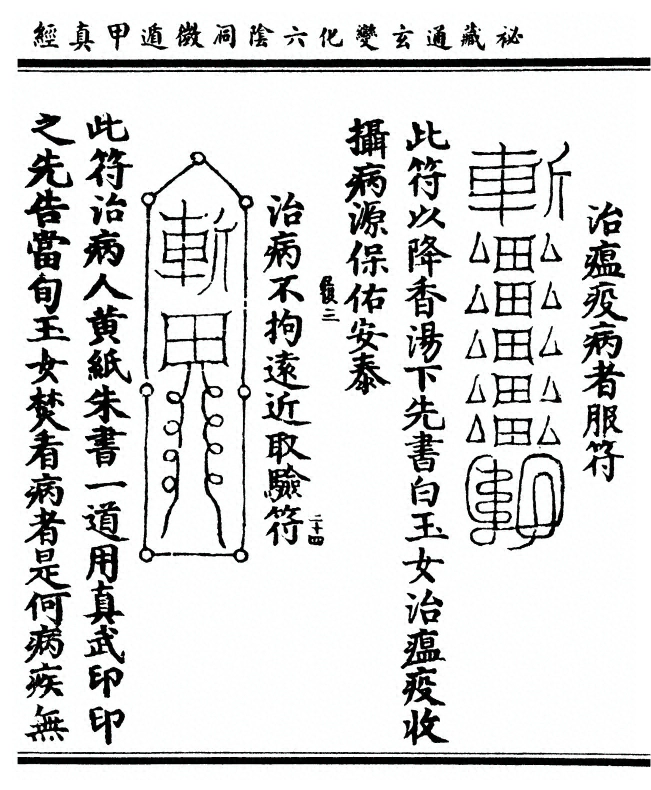 秘藏通玄變化六陰洞微遁甲真經
治瘟疫病者服符
此符以降香湯下先書白玉女治瘟疫收
攝病源保佑安泰
治病不拘遠近取驗符
二十四
此符治病人黄紙朱書一道用真武印印
之先告當旬玉女焚看病者是何病疾無